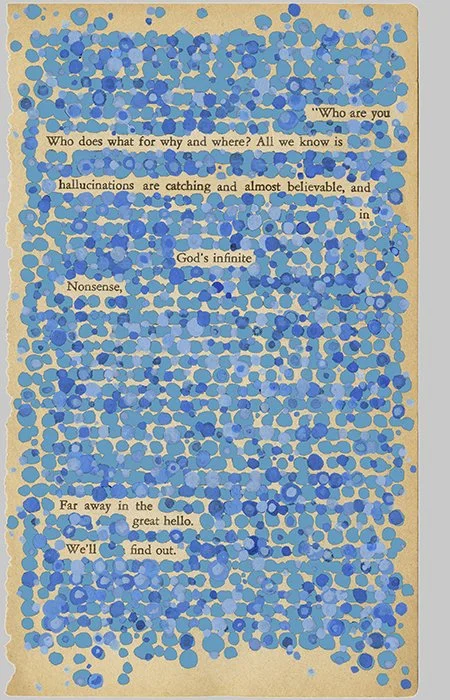 "Who are you
Who does what for why and where? All we know is
hallucinations are catching and almost believable, and
in
God's infinite
Nonsense,
Far away in the
great hello.
We'll find out.